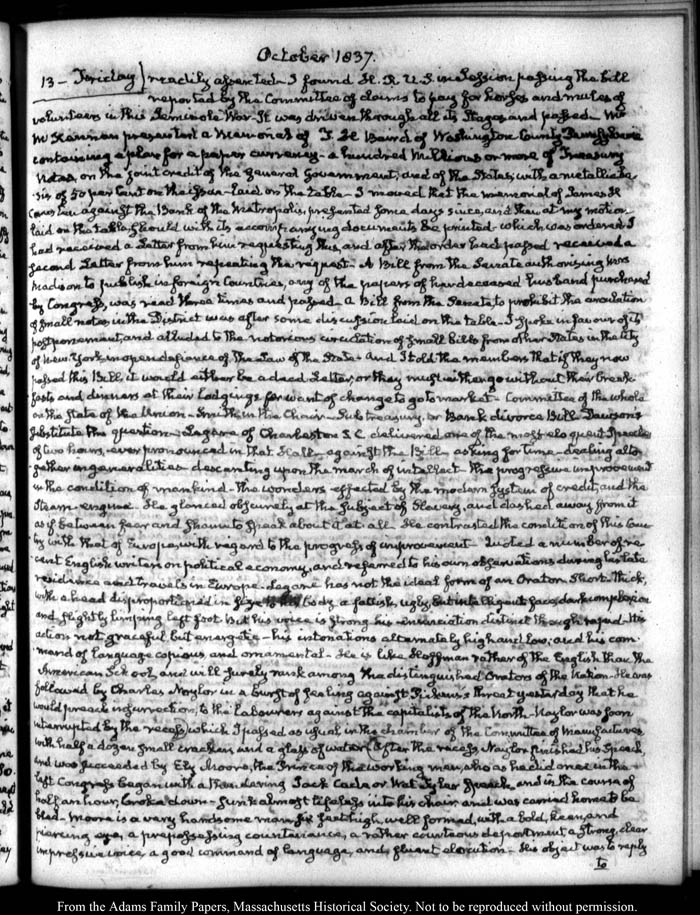 October 1837.
13 – Friday readily assented – I found H. R. U. S. in Session passing the bill
reported by the Committee of Claims to pay for horses and mules of
volunteers in this Seminole War. It was driven through all its Stages and passed – Mr
Mc Kennan presented a memorial of T. H Baird of Washington County Pennsylvania
containing a plan for a paper currency – a hundred Millions or more of Treasury
Notes, on the joint credit of the General Government, and of the States, with a metallic ba-
sis of 50 per Cent on the issue – laid on the table – I moved that the memorial of James H
against the Bank of the Metropolis, presented some days since, and then at my motion
laid on the table, should with its accompanying documents be printed which was ordered. I
had received a Letter from him requesting this, and after the order had passed received a
second Letter from him repeating the request – A Bill from the Senate authorising Mrs
Madison to publish in foreign Countries, any of the papers of her deceased husband purchased
by Congress, was read three times and passed – a Bill from the Senate to prohibit the circulation
of small notes in the District was after some discussion laid on the table – I spoke in favour of its
postponement, and alluded to the notorious circulation of small bills from other States in the City
of New York in open defiance of the Law of the State – And I told the members that if they now
passed this Bill, it would either be a dead Letter, or they must either go without their break-
fasts and dinners at their Lodgings for want of change to go to market – Committee of the whole
on the State of the Union – Smith in the Chair – Sub treasury, or Bank divorce Bill – Dawson's
Substitute the question – Legare of Charleston S. C. delivered one of the most eloquent Speeches
of two hours, ever pronounced in that Hall – against the Bill – asking for time – dealing alto-
gether in generalities – descanting upon the march of intellect – the progressive improvement
in the condition of mankind – the wonders effected by the modern System of credit, and the
Steam-engine. He glanced obscurely at the Subject of Slavery, and dashed away from it
as if between fear and Shame to Speak about it at all. He contrasted the condition of this Coun-
try with that of Europe, with regard to the progress of improvement – Quoted a number of re-
cent English writers on political economy, and referred to his own observations during his late
residence and travels in Europe. Legare has not the ideal form of an Orator. Short, thick,
with a head disproportioned in size to his body, a fattish, ugly, but intelligent face, dark complexion
and slightly limping left foot. But his voice is strong, his enunciation distinct though rapid – His
action not graceful but energetic – his intonations alternately high and low; and his com-
mand of language copious and ornamental – He is like Hoffman rather of the English than the
American School, and will surely rank among the distinguished Orators of the Nation – He was
followed by Charles Naylor in a burst of feeling against Pickens's threat yesterday that he
would preach insurrection, to the Labourers against the capitalists of the North – Naylor was soon
interrupted by the recess, which I passed as usual in the chamber of the Committee of Manufactures
with half a dozen small crackers and a glass of water. After the recess Naylor finished his Speech
and was succeeded by Ely Moore, the Prince of the working men, who as he did once in the
last Congress began with a thundering Jack Cade or Wat Tyler Speech, and in the course of
half an hour, broke down – sunk almost lifeless into his chair and was carried home to be
bled – Moore is a very handsome man six feet high, well formed, with a bold, keen and
piercing eye, a prepossessing countenance, a rather courteous deportment, a strong, clear
impressive voice, a good command of language, and fluent elocution – His object was to reply
to
From the Adams Family Papers, Massachusetts Historical Society. Not to be reproduced without permission.